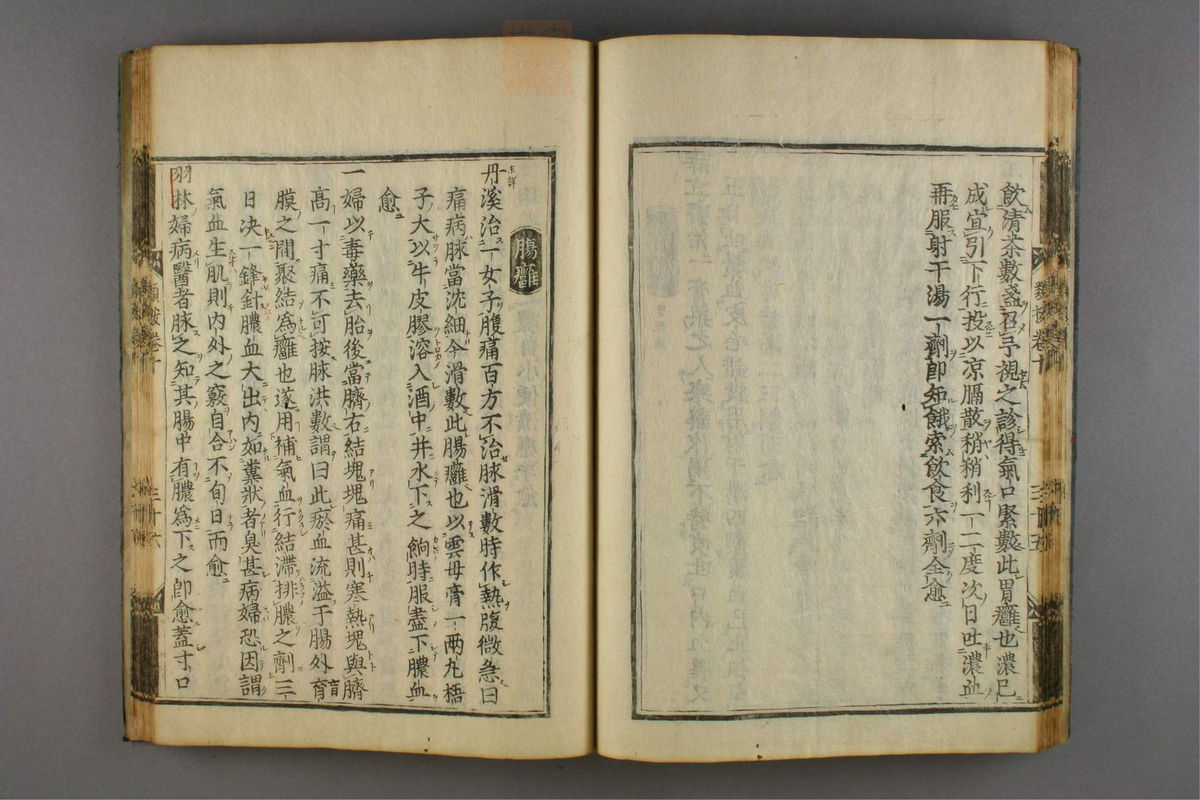 飲清茶數盞召予視之診得氣口緊數此胃癰也濃已
成宜引下行投以凉膈散稍稍利一二度次日吐濃血
再服射干湯一劑即知餓索飲食六劑全愈
類按卷十
三十五
腸癰
丹溪治一女子腹痛百方不治脉滑數時作熱腹微急曰
痛病脉當沈細今滑數此腸癰也以雲母膏一兩丸梧
子大以牛皮膠溶入酒中并水下之餉時服盡下膿血
愈
一婦以毒藥去胎後當臍右結塊塊痛甚則寒熱塊與臍
高一寸痛不可按脉洪數謂曰此瘀血流溢于腸外育
膜之間聚結爲癰也遂用補氣血行結滯排膿之劑三
日决一鋒針膿血大出内如糞狀者臭甚病婦恐因謂
氣血生肌則内外之竅自合不旬日而愈
羽林婦病醫者脉之知其腸中有膿爲下之即愈蓋寸口
類按卷十
三十六